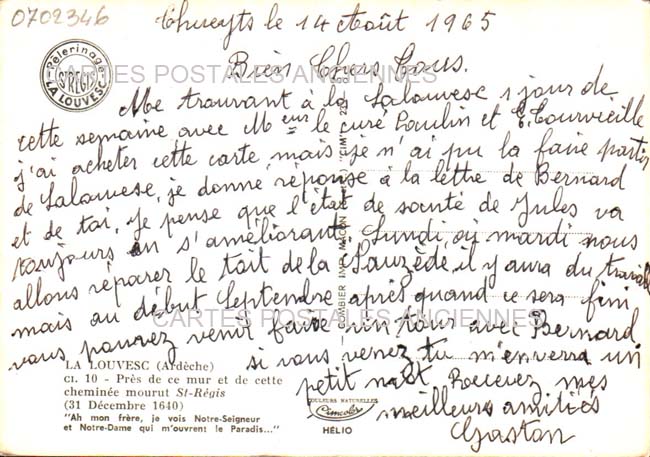 0702346
Thueyts le 14 Août 1965
Pèlerinage
St REGIS
LA LOUVESC
CARTES POSTALES ANCIENNES
Bien Chers Tous.
Me trouvant à la Lalouvesc 1 jour de
cette semaine avec Mr le curé Paulin et E. Tourvieille
j'ai acheter cette carte mais je n'ai pu la faire partir
de Lalouvesc, je donne réponse à la lettre de Bernard
et de toi. Je pense que l'état de santé de Jules va
toujours en s'améliorant, Lundi, où mardi nous
allons réparer le toit de la Sauzède, il y aura du travail
mais au début Septembre après quand ce sera fini
CARTES POSTALES ANCIENNES
vous pouvez venir faire un tour avec Bernard
si vous venez tu m'enverra un
petit mot Recevez mes
meilleurs amitiés
Gaston
COMBIER IMP. MACON
LA LOUVESC (Ardèche)
CI. 10 - Près de ce mur et de cette
cheminée mourut St-Régis
(31 Décembre 1640)
"Ah mon frère, je vois Notre-Seigneur
et Notre-Dame qui m'ouvrent le Paradis..."
COULEURS NATURELLES
Cimcolor
HÉLIO